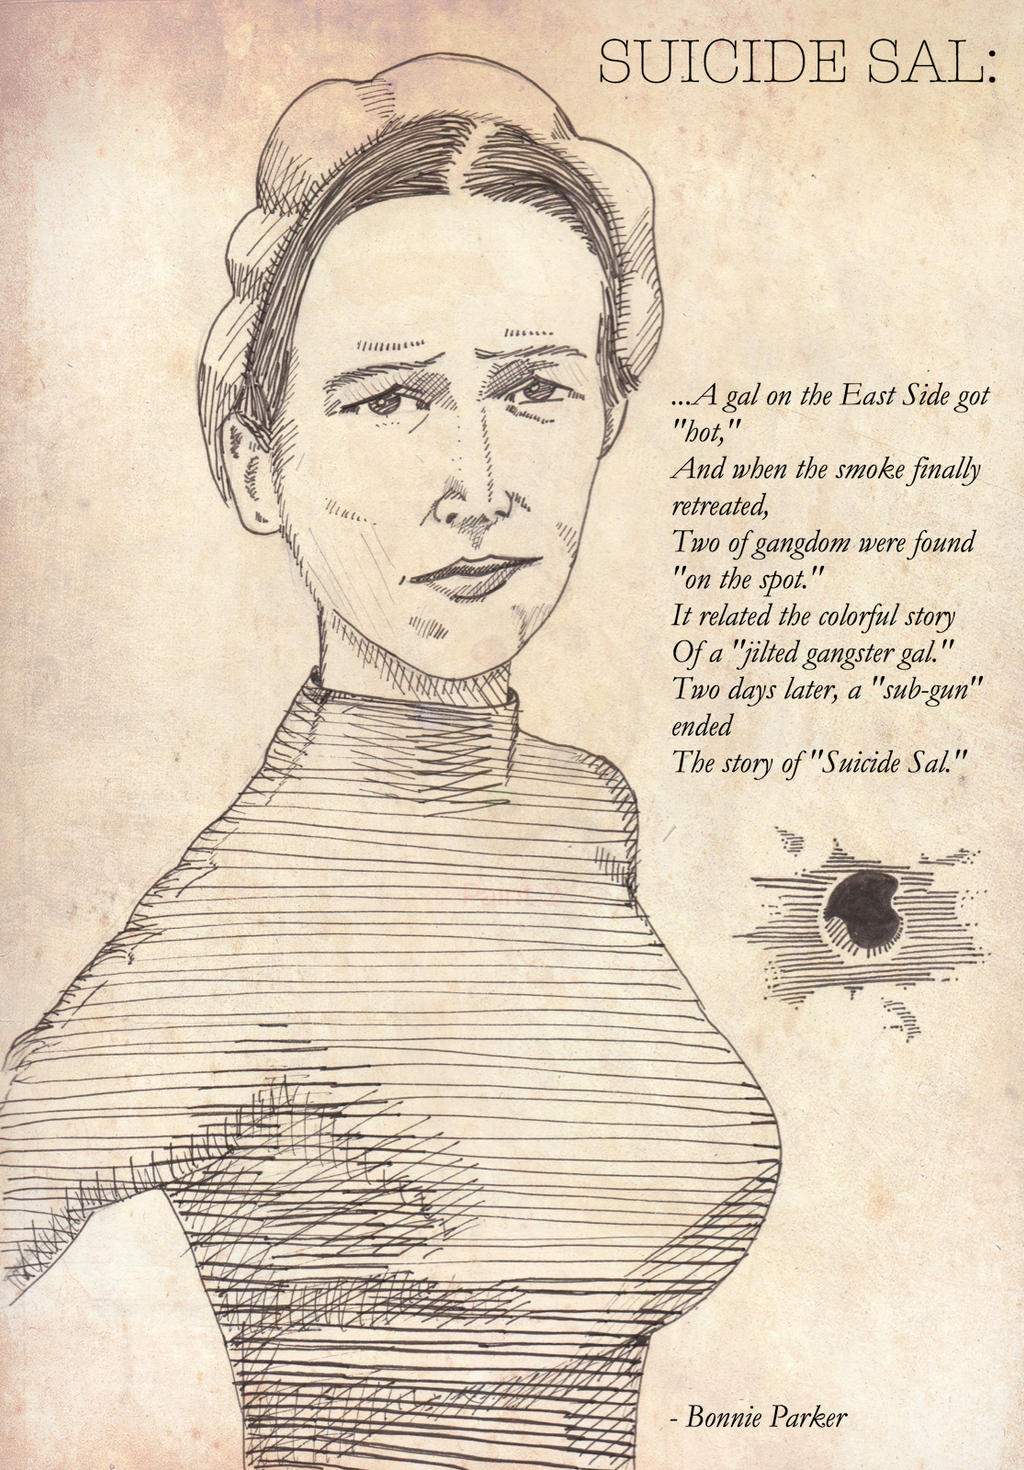 SUICIDE SAL:
...A gal on the East Side got
"hot,"
And when the smoke finally
retreated,
Two of gangdom were found
"on the spot."
It related the colorful story
Of a "jilted gangster gal."
Two days later, a "sub-gun"
ended
The story of "Suicide Sal."
- Bonnie Parker